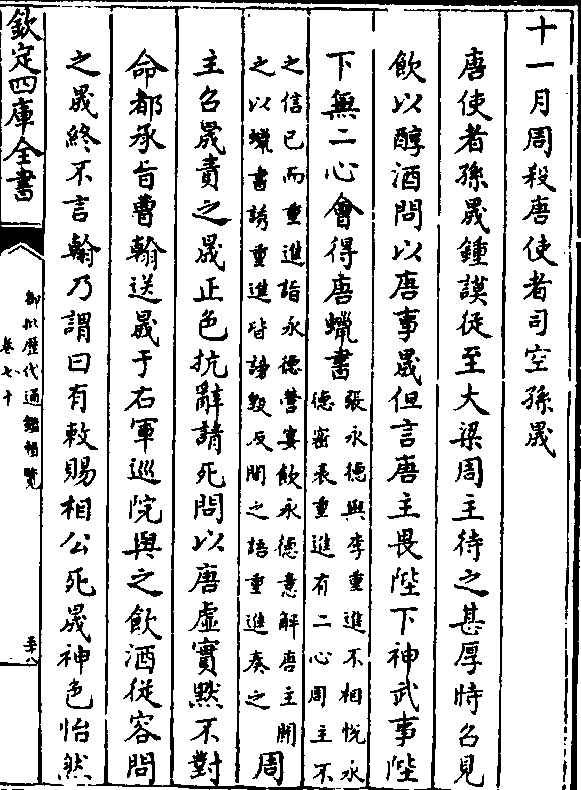 十一月周殺唐使者司空孫晟
唐使者孫晟鍾謨從至大梁周主待之甚厚時召見
飲以醇酒問以唐事晟但言唐主畏陛下神武事陛
下無二心會得唐蠟書
張永德與李重進不相恱永
德密表重進有二心周主不
之信已而重進詣永德營宴飲永德意解唐主聞
之以蠟書誘重進皆謗毀反間之語重進奏之
周
主召晟責之晟正色抗辭請死問以唐虛實黙不對
命都承旨曹翰送晟于右軍巡院與之飲酒從容問
之晟終不言翰乃謂曰有敕賜相公死晟神色怡然
欽定四庫全書
御批歴代通鑑輯覽
卷七十